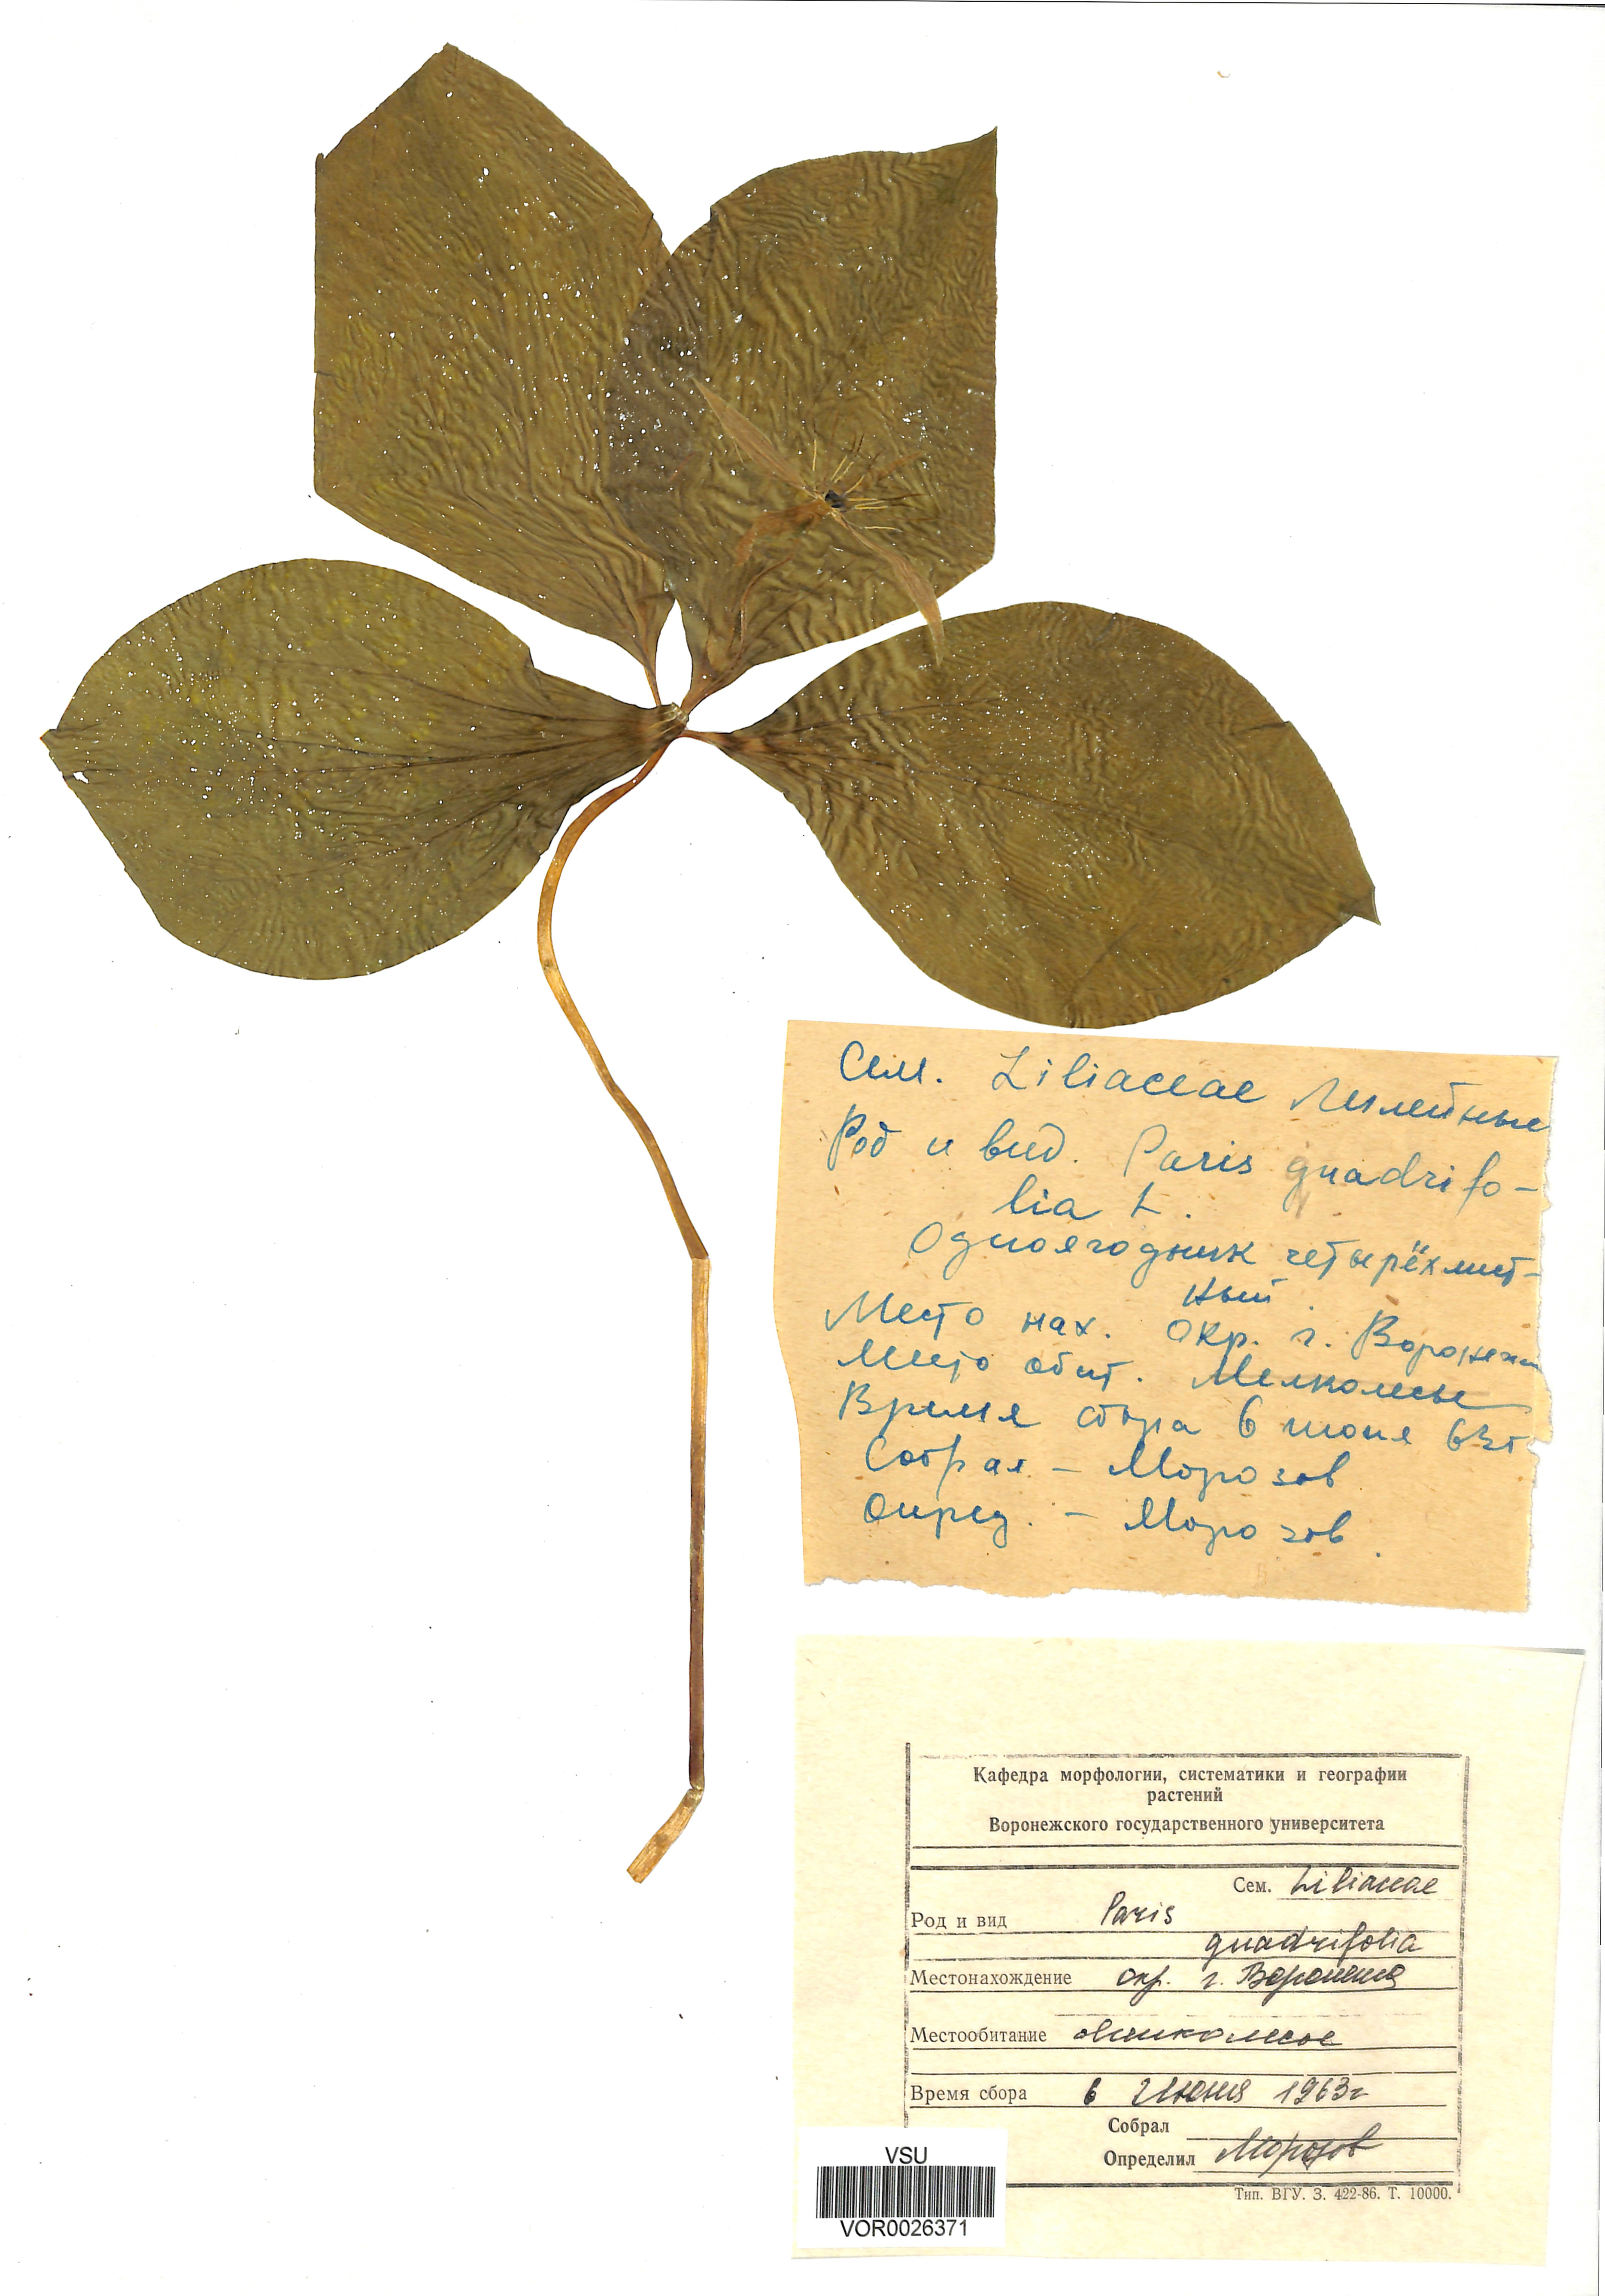 Сем. Liliaceae Лилейные
Род и вид. Paris quadrifo-
lia L.
Одноягодник четырёхлист-
ный.
Место нах. Окр. г. Воронежа
Место обит. Мелколесье
Время сбора 6 июня 63г
Собрал – Морозов
Опред. – Морозов.
Кафедра морфологии, систематики и географии
растений
Воронежского государственного университета
Сем. Liliaceae
Род и вид Paris
quadrifolia
Местонахождение окр. г. Воронежа
Местообитание мелколесье
Время сбора 6 Июня 1963г
Собрал
Определил Морозов
Тип. ВГУ. З. 422-86. Т. 10000.
VSU
VOR0026371